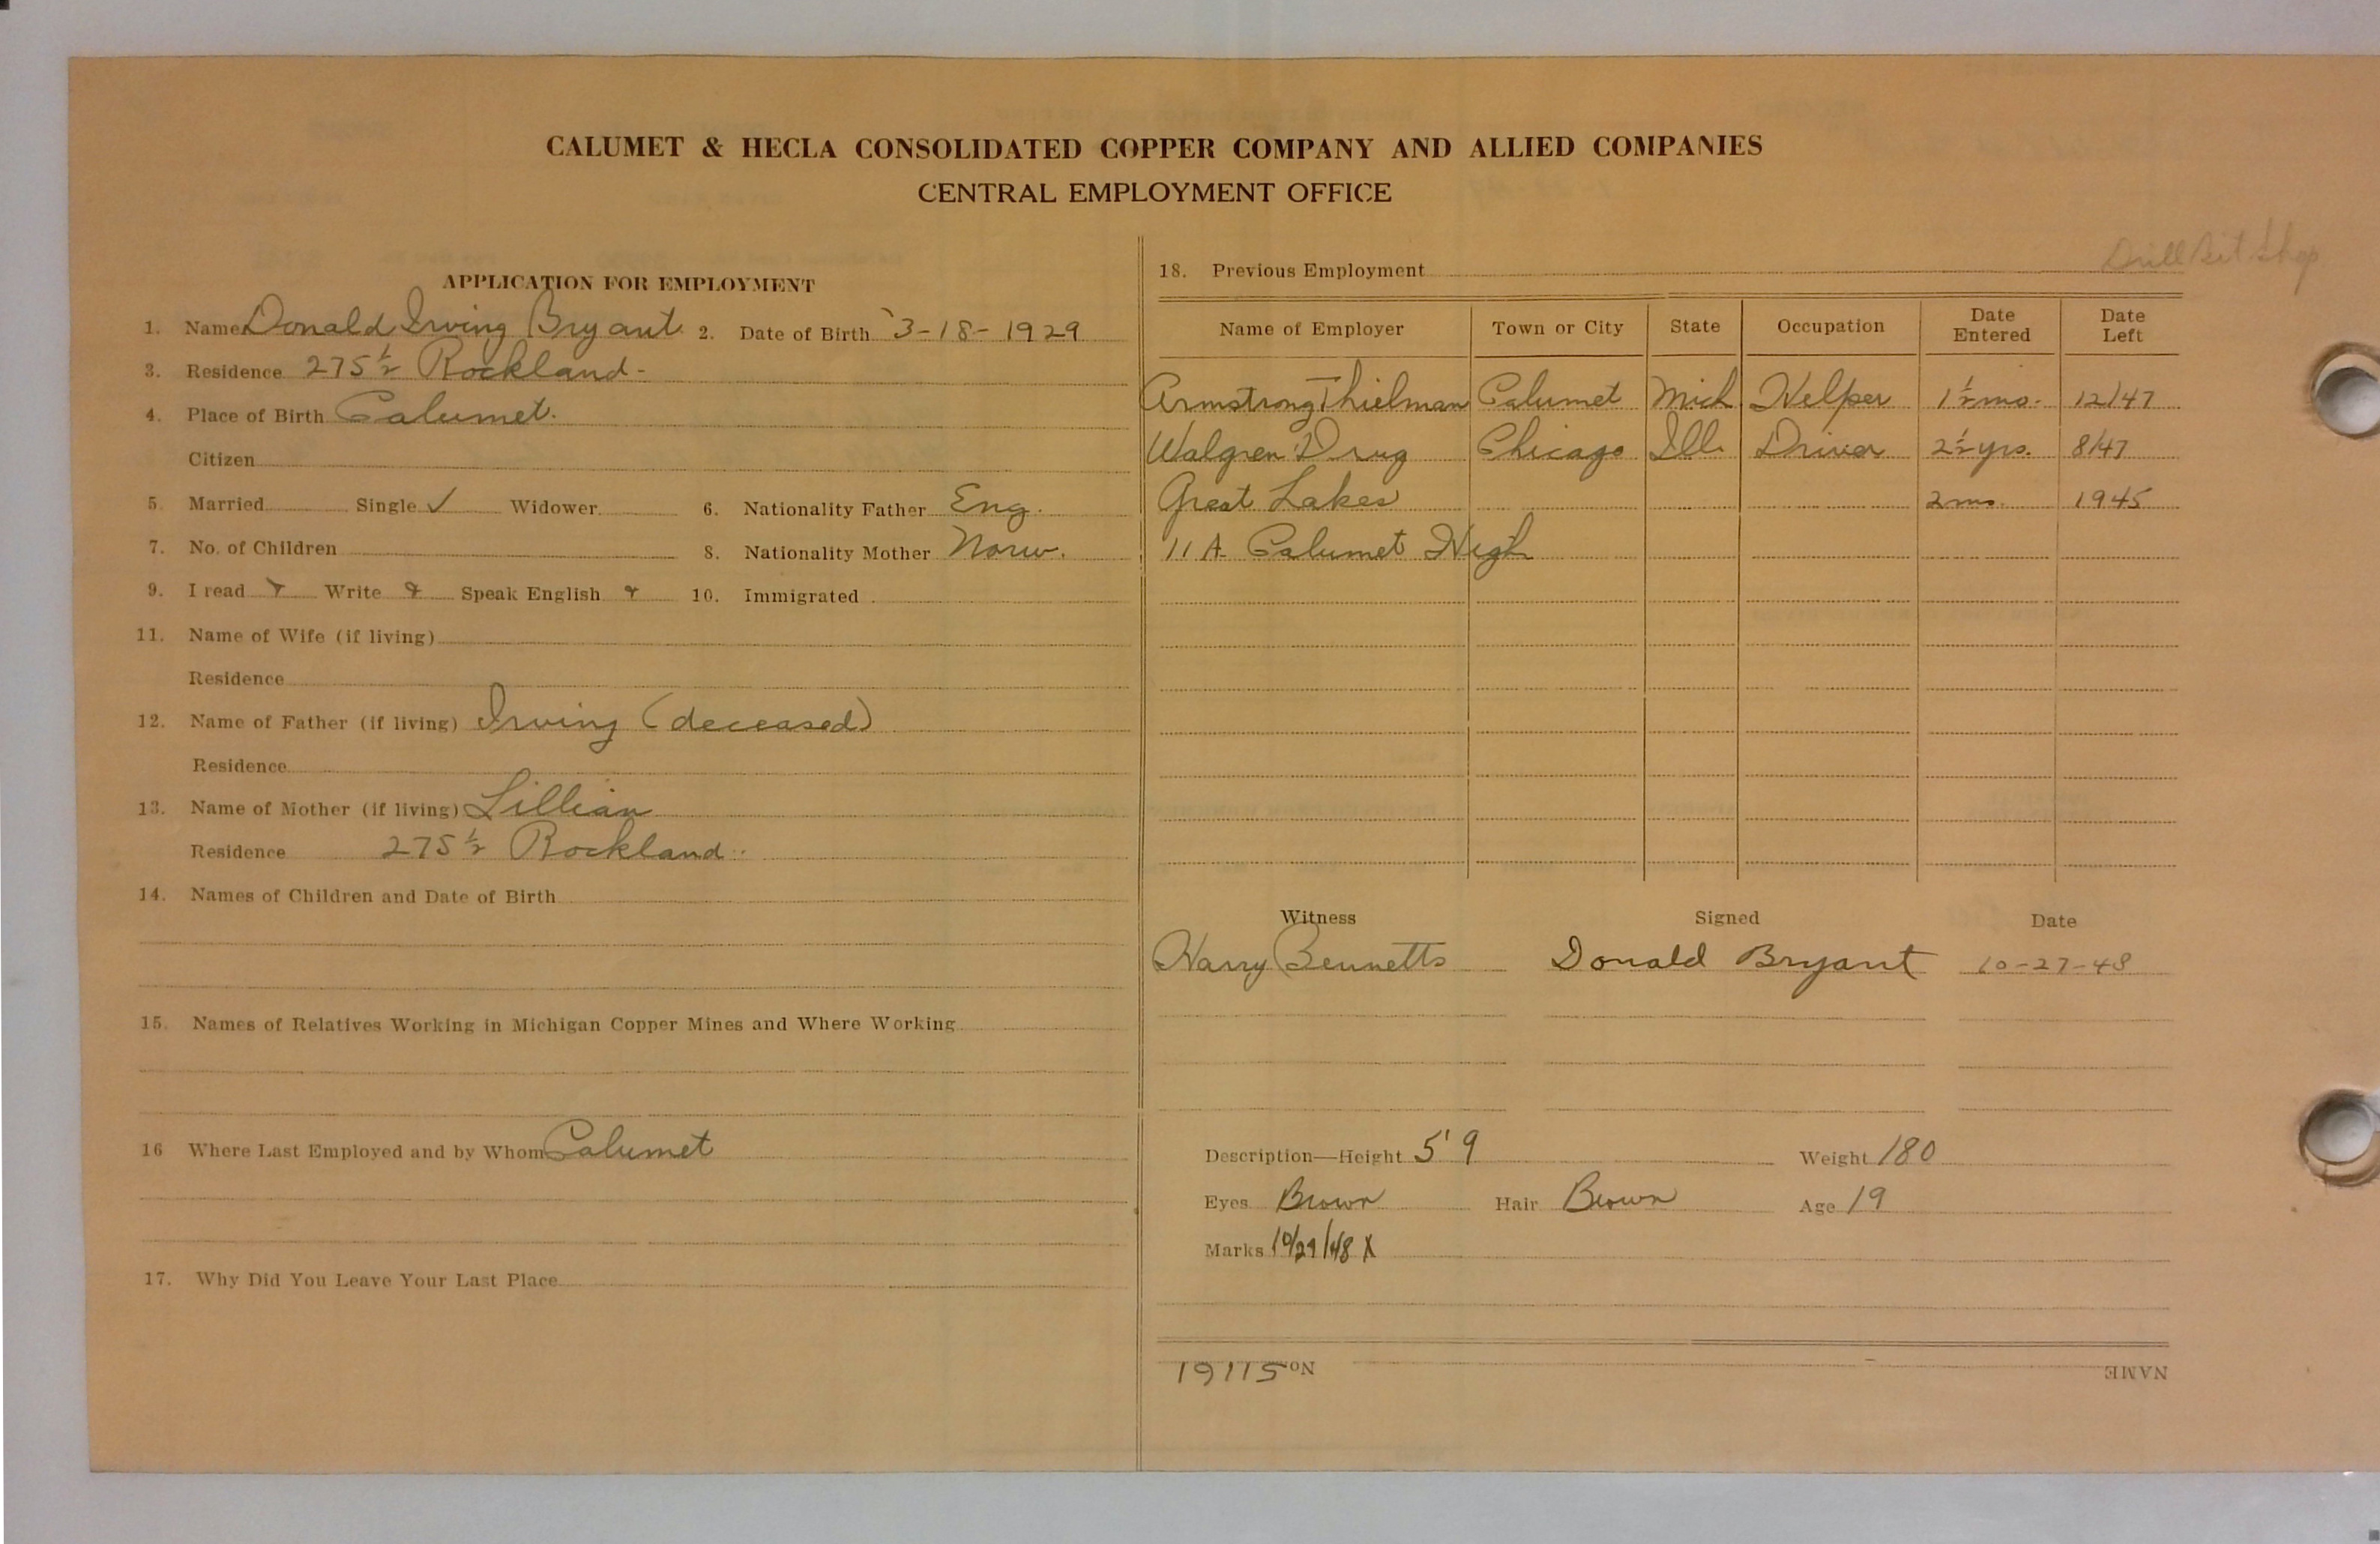 CALUMET & HECLA CONSOLIDATED COPPER COMPANY AND ALLIED COMPANIES
CENTRAL EMPLOYMENT OFFICE
APPLICATION FOR EMPLOYMENT
1. Name Donald Irving Bryant 2. Date of Birth 3-18-1929
3. Residence 275½ Rockland
4. Place of Birth Calumet.
Citizen
5. Married Single ✓ Widower 6. Nationality Father Eng.
7. No. of Children 8. Nationality Mother Norw.
9. I read Y Write Y Speak English Y 10. Immigrated
11. Name of Wife (if living)
Residence
12. Name of Father (if living) Irving (deceased)
Residence
13. Name of Mother (if living) Lillian
Residence 275½ Rockland
14. Names of Children and Date of Birth
15. Names of Relatives Working in Michigan Copper Mines and Where Working
16 Where Last Employed and by Whom Calumet
17. Why Did You Leave Your Last Place
Drill Bit Shop
18. Previous Employment
Name of Employer Town or City State Occupation Date Entered Date Left
Armstrong Thielman Calumet Mich Helper 1½ mo. 12/47
Walgren Drug Chicago Ill. Driver 2½ yrs. 8/47
Great Lakes 2 mo. 1945
11 A Calumet High
Witness Signed Date
Harry Bennetts Donald Bryant 10-27-48
Description—Height 5'9 Weight 180
Eyes Brown Hair Brown Age 19
Marks 10/29/48 X
NAME No 19115